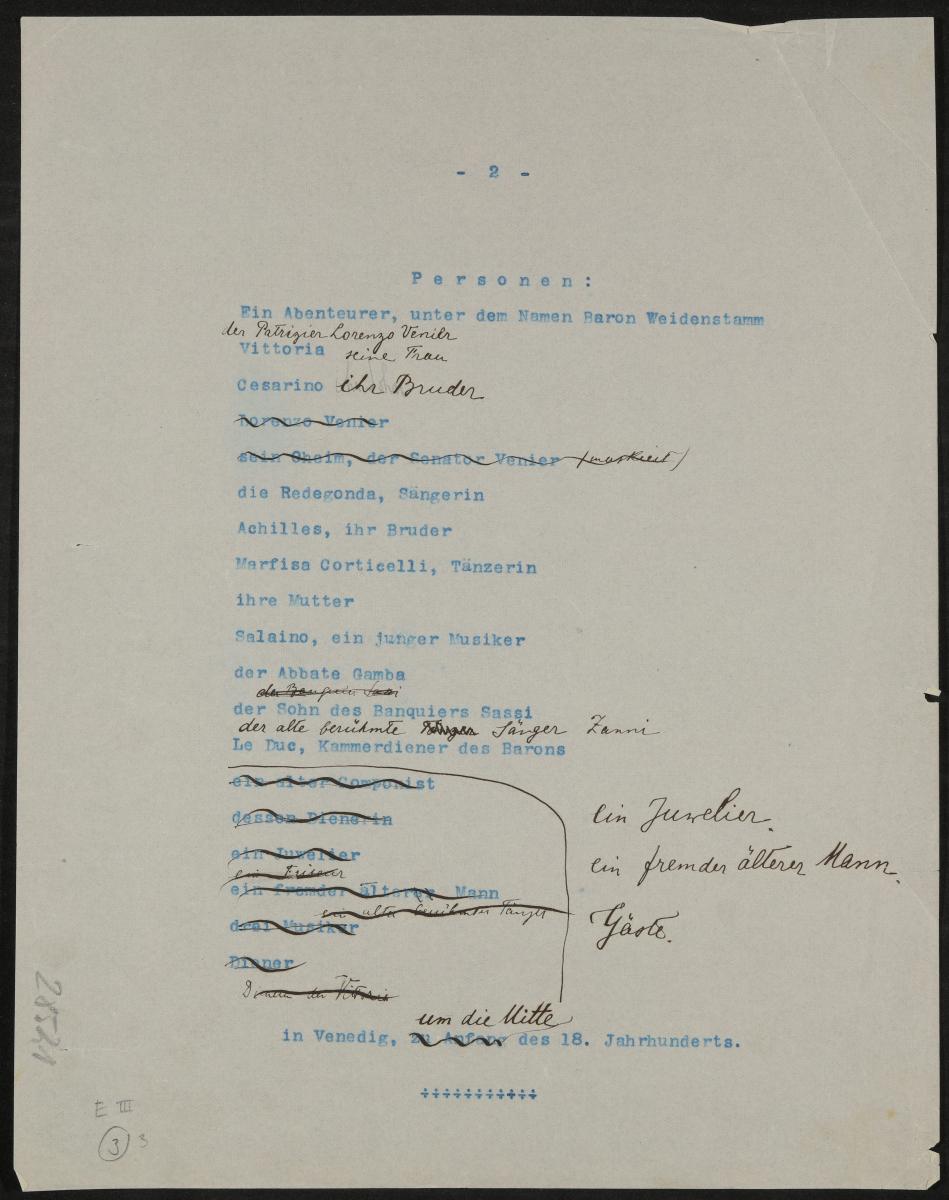 - 2 -
Personen:
Ein Abenteurer, unter dem Namen Baron Weidenstamm
der Patrizier Lorenzo Venier
Vittoria seine Frau
Cesarino ihr Bruder
Lorenzo Venier
sein Oheim, der Senator Venier (maskiert)
die Redegonda, Sängerin
Achilles, ihr Bruder
Marfisa Corticelli, Tänzerin
ihre Mutter
Salaino, ein junger Musiker
der Abbate Gamba
der Banquier Sassi
der Sohn des Banquiers Sassi
der alte berühmte Sänger Zanni
Le Duc, Kammerdiener des Barons
ein alter Componist
dessen Dienerin
ein Juwelier
ein Juwelier.
ein Friseur
ein fremder älterer Mann
ein fremder älterer Mann.
ein alter berühmter Tänzer
drei Musiker
Gäste.
Diener
der Vittoria
um die Mitte
in Venedig, zu Anfang des 18. Jahrhunderts.
28571
E III
3 3